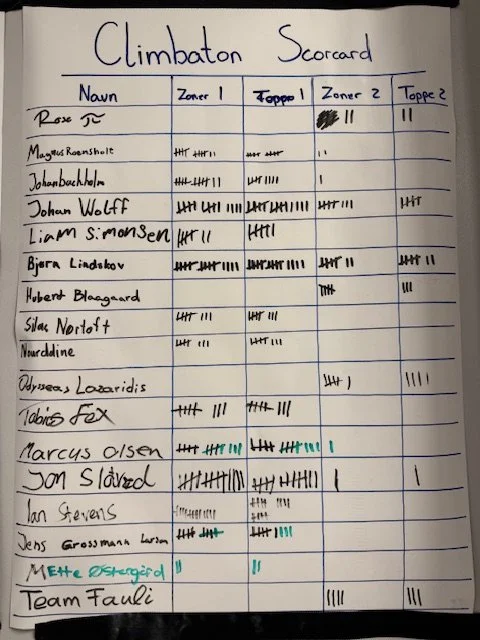 Climbaton Scorcard
Navn Zoner 1 Toppe 1 Zoner 2 Toppe 2
Rose
Magnus Roensholt
Johan bachholm
Johan Wolff
Liam Simonsen
Bjørn Lindskov
Hubert Blaagaard
Silas Nortoft
Nourddine
Odysseas Lazaridis
Tobias Fex
Marcus Olsen
Jon
Ian Stevens
Jens Grossmann Larsen
Mette Østergård
Team Fauli